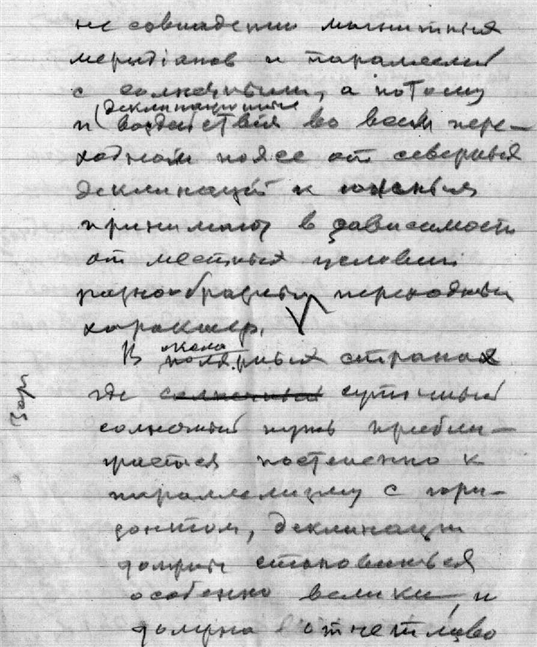 не совпадении магнитных
меридiанов и параллелей
с солнечными, а потому
деклинационные
и воздействiя во всем пере-
ходном поясе от северных
деклинацiй к южным
принимают в зависимости
от местных условий
разнообразный переходный
характер.
около
В полярных странах
где солнечный суточный
солнечный путь прибли-
жается постепенно к
параллелизму с гори-
зонтом, деклинации
должны становиться
особенно велики, и
должна отчетливо